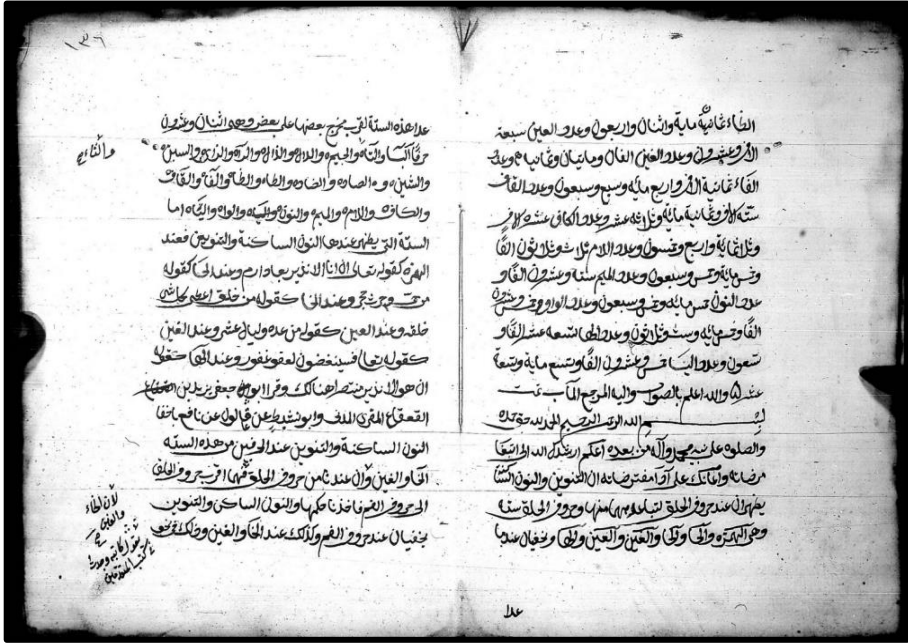 الظاء ثمانية ماية واثنان واربعون وعدد العين سبعة
الاف وعشرون وعدد الغين الفان ومايتان وثمانيا وعدد
الفاء ثمانية الاف واربع مايه وسبع وسبعون وعدد القاف
سته الاف وثمانية مايه وثلاثه عشر وعدد الكاف عشره الاف
وثلثماية واربع وخمسون وعدد اللام ثلاث وثلاثون الفا
وخمس مايه وخمس وسبعون وعدد الميم ستة وعشرون الفا و
عدد النون خمس مايه وخمس وسبعون وعدد الواو وخمس وعشرون
الفا وخمس مايه وست وثلاثون وعدد الها تسعه عشر الفا و
تسعون وعدد اليا خمس وعشرون الفا وتسع مايه وتسعة
عشر والله اعلم بالصواب واليه المرجع المآب تمت
بسم الله الرحمن الرحيم الحمد لله حق حمده
والصلوة على نبيه محمد وآله من بعده اعلم ارشدك الله الى اتباع
مرضاته واعانك على آدا مفترضاته ان التنوين والنون الساكنة
يظهران عند حروف الحلق لتباعدهن منها وحروف الحلق ستة
وهي الهمزه والحا والخا والعين والغين والها ويخفيان عند ما
عدا
١٣٦
عدا هذه الستة لقرب مخرج بعضها على بعض وهي اثنان وعشرون
حرفا البا والتاء والجيم والدال والذال والراء والزاء والسين
والثاء
والشين والصاد والضاد والطاء والظاء والفاء والقاف
والكاف واللام والميم والنون والواو والياء اما
الستة التي يظهر عندها النون الساكنة والتنوين فعند
الهمزه كقوله تعالى ان انا الا نذير بعاد ارم وعند الحا كقوله
من خلق
خلقه وعند العين كقوله من عده وليال عشر وعند الغين
كقوله تعالى فسينغضون لعفو غفور وعند الها كقوله
ان هو الا نذير منتصرا هنالك وقرا ابو جعفر يزيد بن
القعقاع المقرى المدني وابو نشيط عن قالون عن نافع باخفا
النون الساكنة والتنوين عند الحرفين من هذه الستة
الخا والغين وان عندنا من حروف الحلق فهما اقرب حروف الحلق
الى حروف الفم فاخذنا حكمها والنون الساكن والتنوين
يخفيان عند حروف الفم وكذلك عند الخا والغين وذلك نحو
لان الخاء
والغين